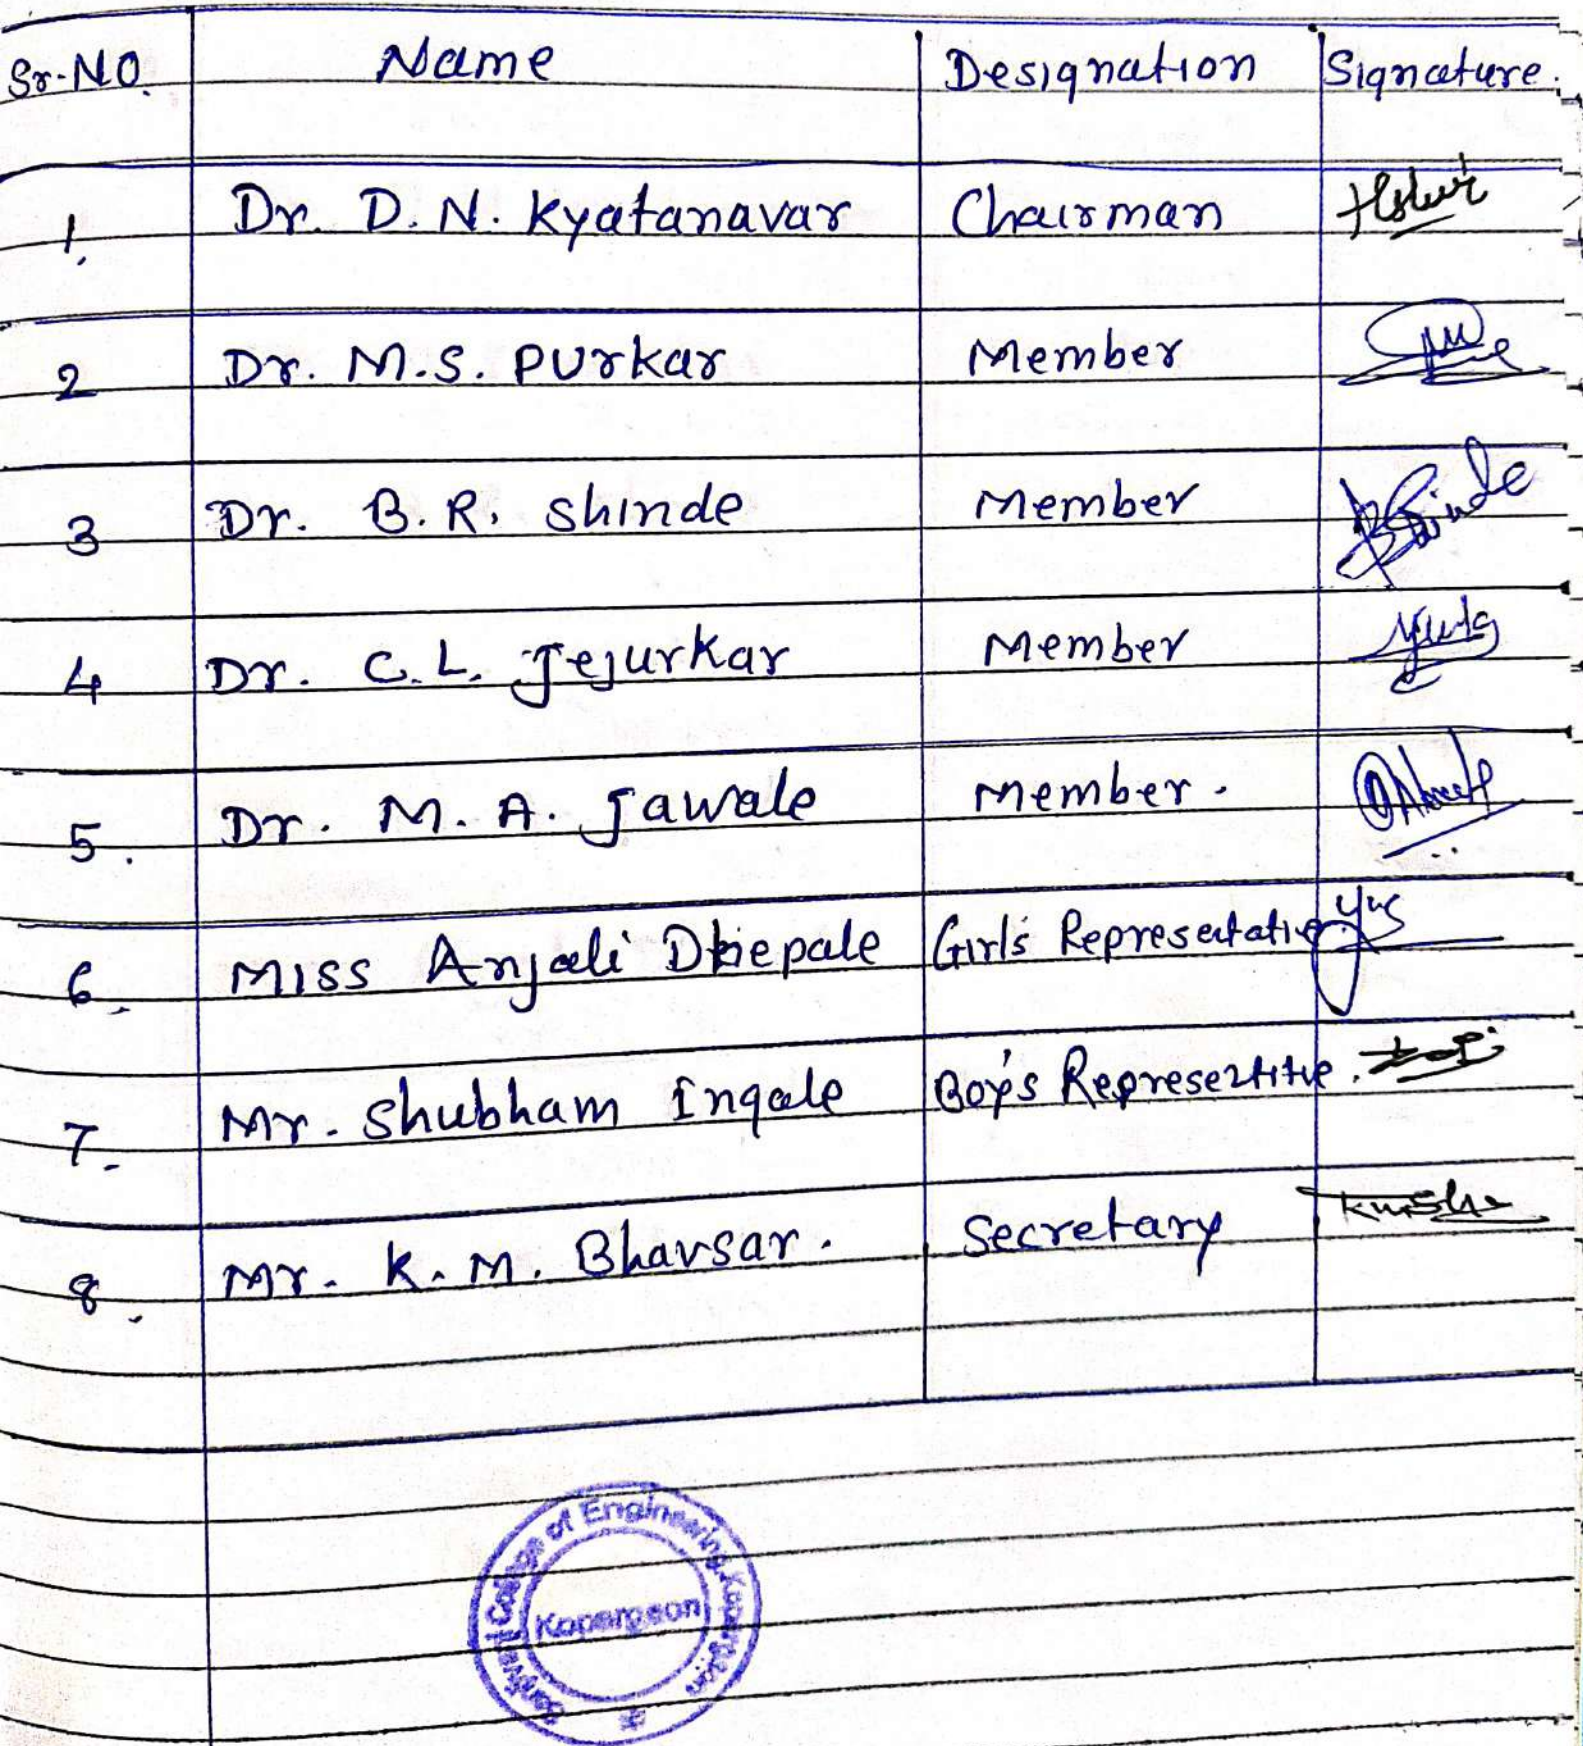 Sr.NO. Name Designation Signature.
1. Dr. D. N. Kyatanavar Chairman
2 Dr. M.S. Purkar Member
3 Dr. B.R. Shinde Member BShinde
4 Dr. C.L. Jejurkar Member
5. Dr. M. A. Jawale Member.
6. Miss Anjali Girl's Representative
7. Mr. Shubham Ingale Boy's Represertitve.
8. Mr. K. M. Bhavsar. Secretary
Sanjivani College of Engineering, Kopargaon
Kopargaon